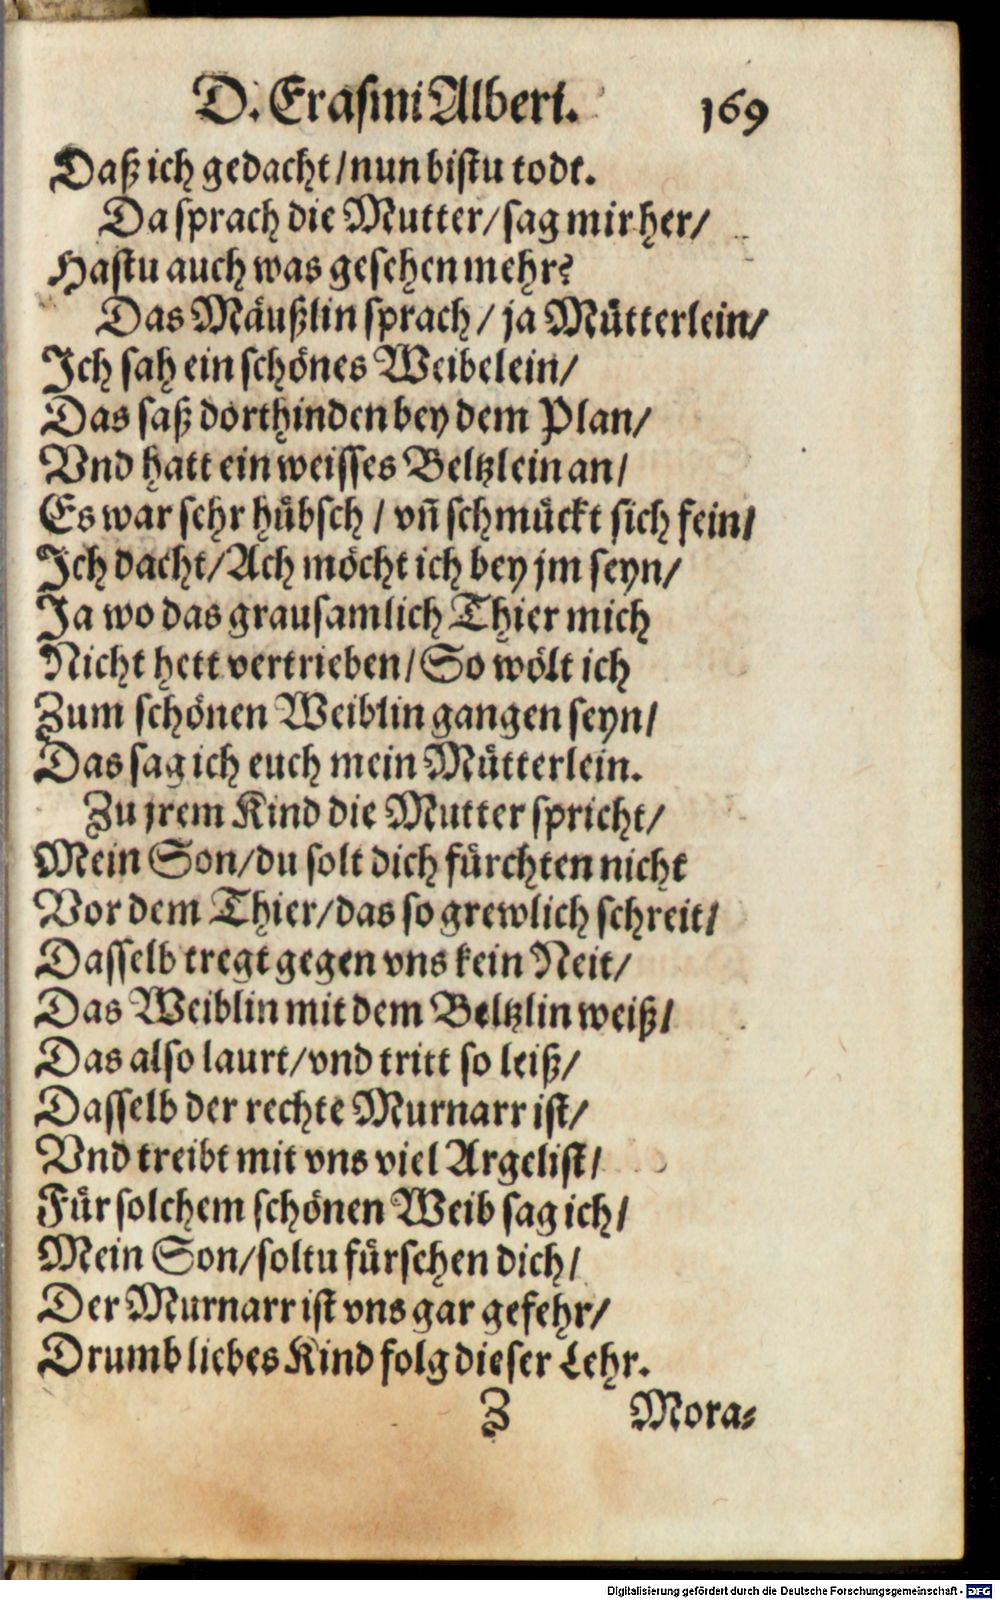 D. Erasmi Alberi. 169
Daß ich gedacht/nun bistu todt.
Da sprach die Mutter/sag mir her/
Hastu auch was gesehen mehr?
Das Mäußlin sprach/ ja Mütterlein/
Ich sah ein schönes Weibelein/
Das saß dorthinden bey dem Plan/
Vnd hatt ein weisses Beltzlein an/
Es war sehr hübsch/ vñ schmückt sich fein/
Ich dacht/Ach möcht ich bey jm seyn/
Ja wo das grausamlich Thier mich
Nicht hett vertrieben/So wölt ich
Zum schönen Weiblin gangen seyn/
Das sag ich euch mein Mütterlein.
Zu jrem Kind die Mutter spricht/
Mein Son/du solt dich fürchten nicht
Vor dem Thier/das so grewlich schreit/
Dasselb tregt gegen vns kein Neit/
Das Weiblin mit dem Beltzlin weiß/
Das also laurt/vnd tritt so leiß/
Dasselb der rechte Murnarr ist/
Vnd treibt mit vns viel Argelist/
Für solchem schönen Weib sag ich/
Mein Son/soltu fürsehen dich/
Der Murnarr ist vns gar gefehr/
Drumb liebes Kind folg dieser Lehr.
Z Mora⸗
Digitalisierung gefördert durch die Deutsche Forschungsgemeinschaft - DFG